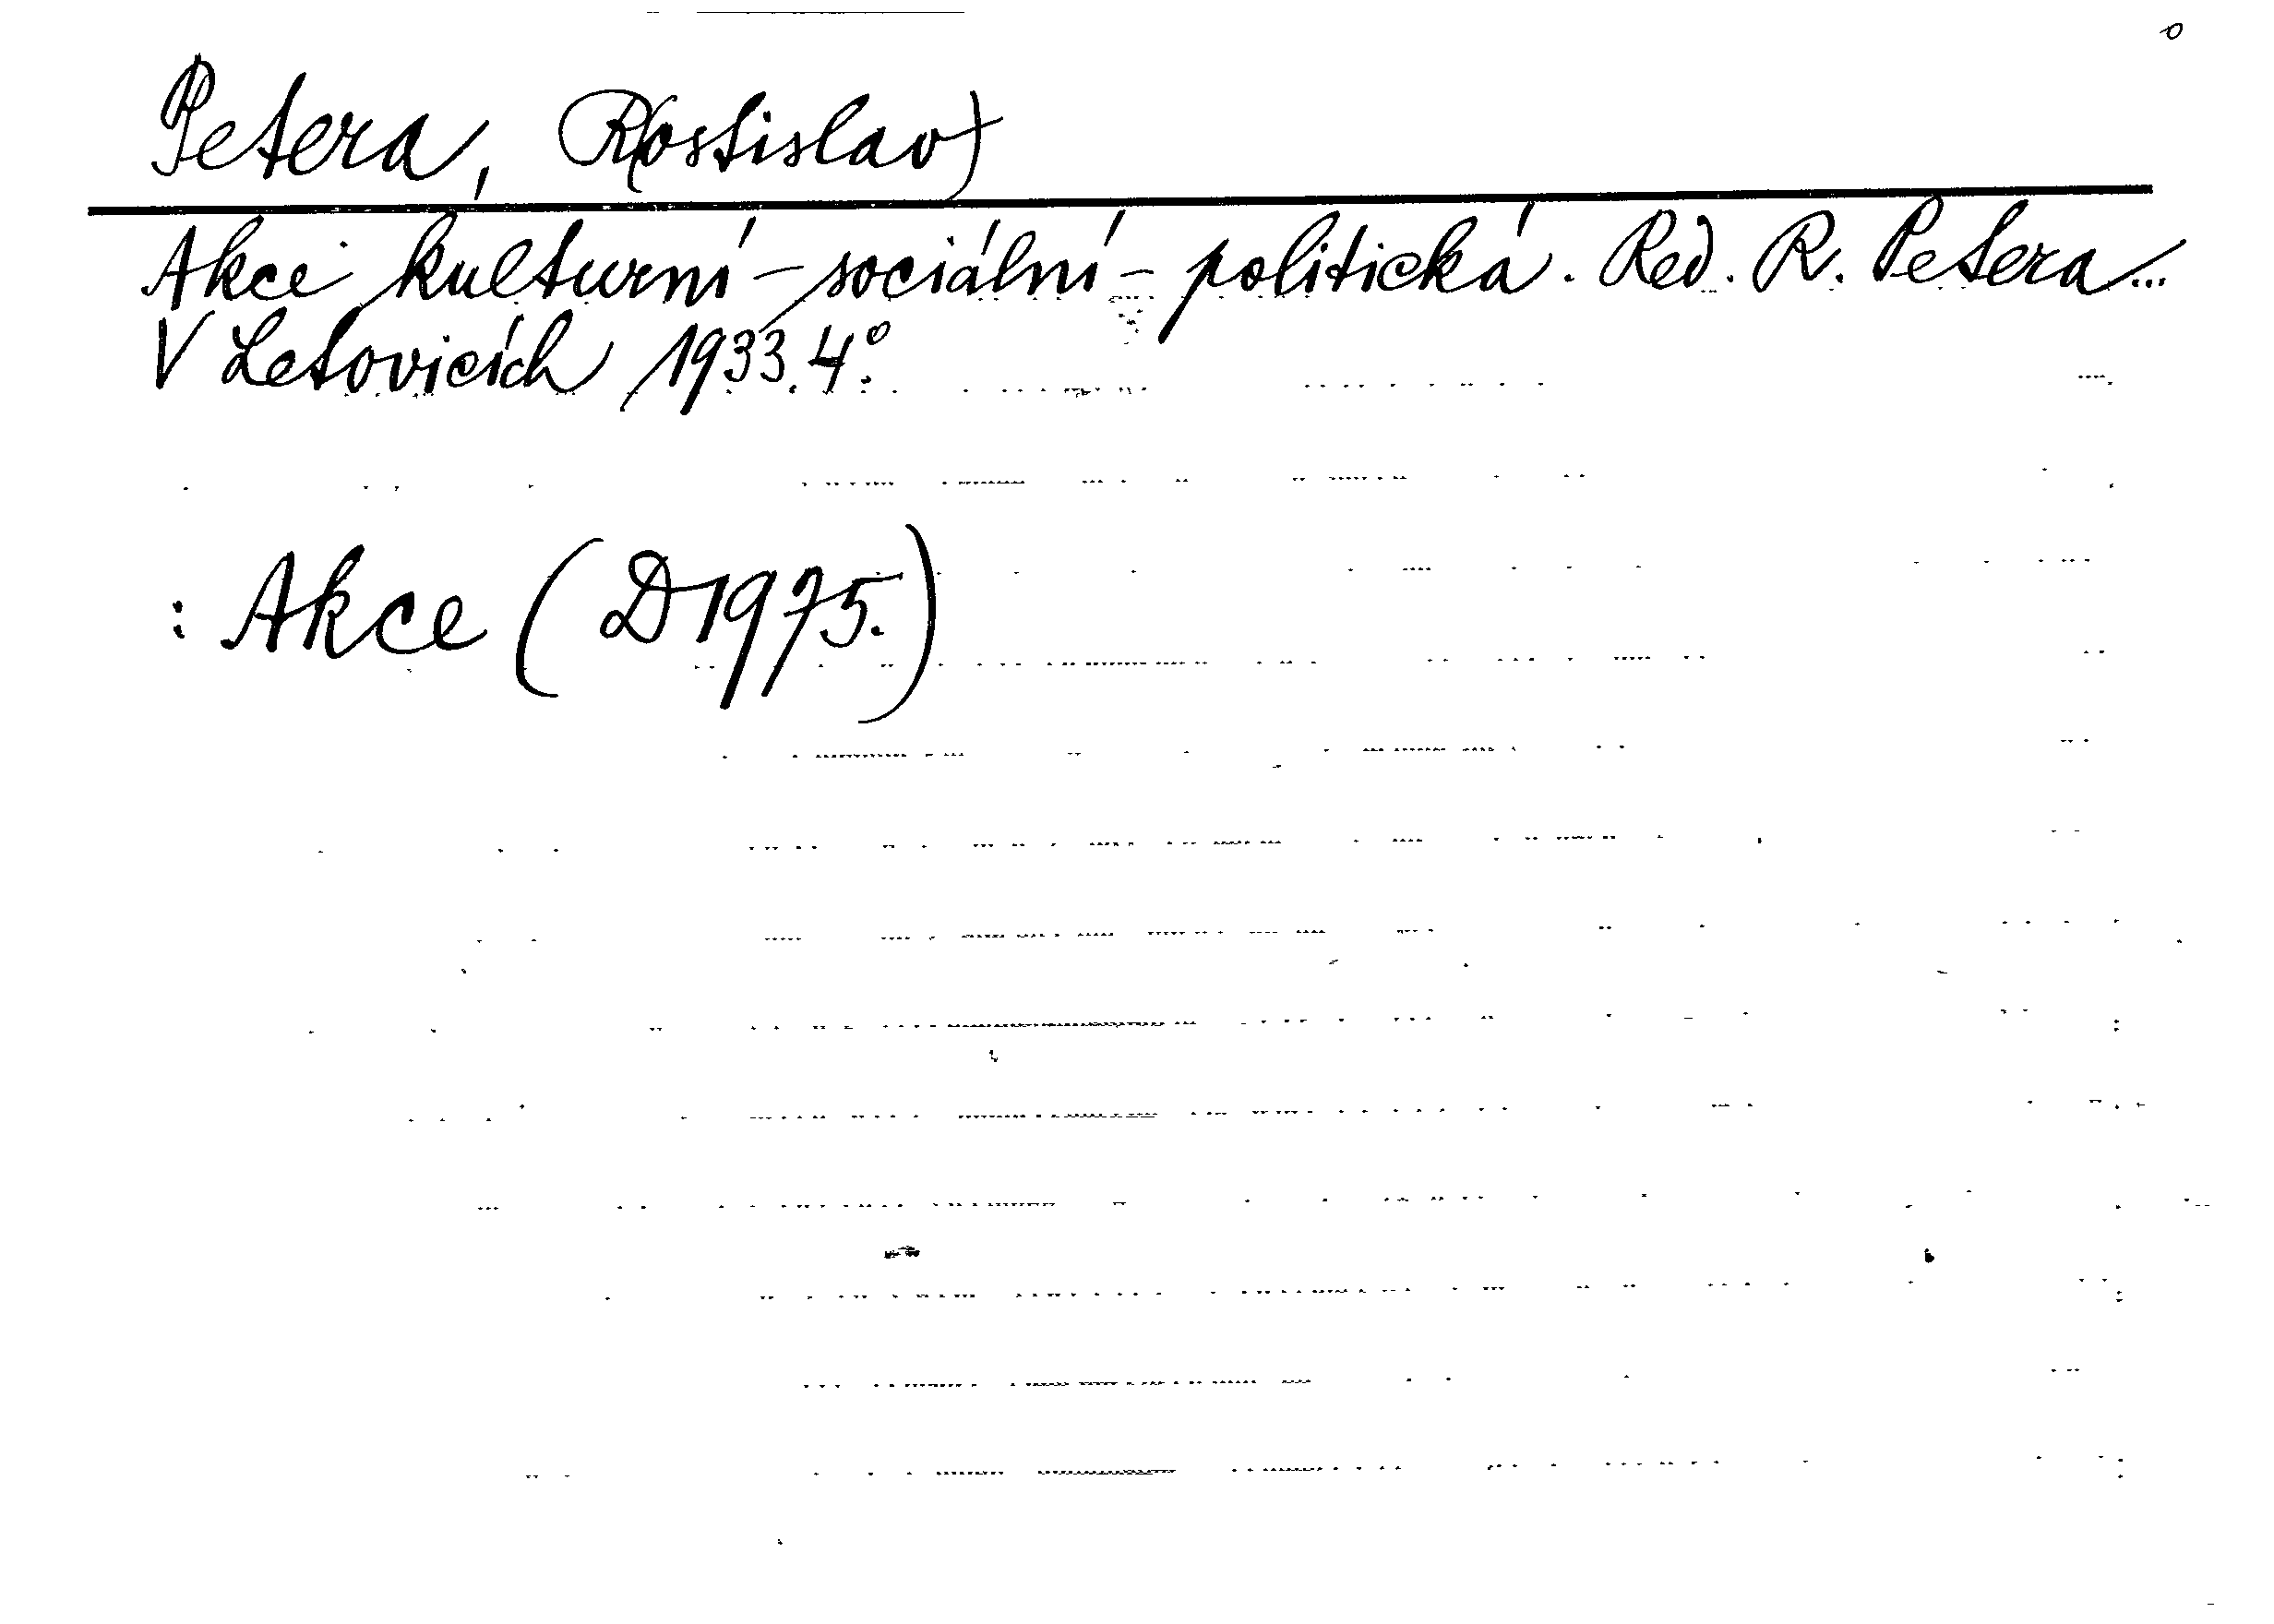 Petera, R(ostislav)
Akce kulturní - sociální - politická. Red. R. Petera...
V Letovicích 1933. 4°.
: Akce (D 1975.)